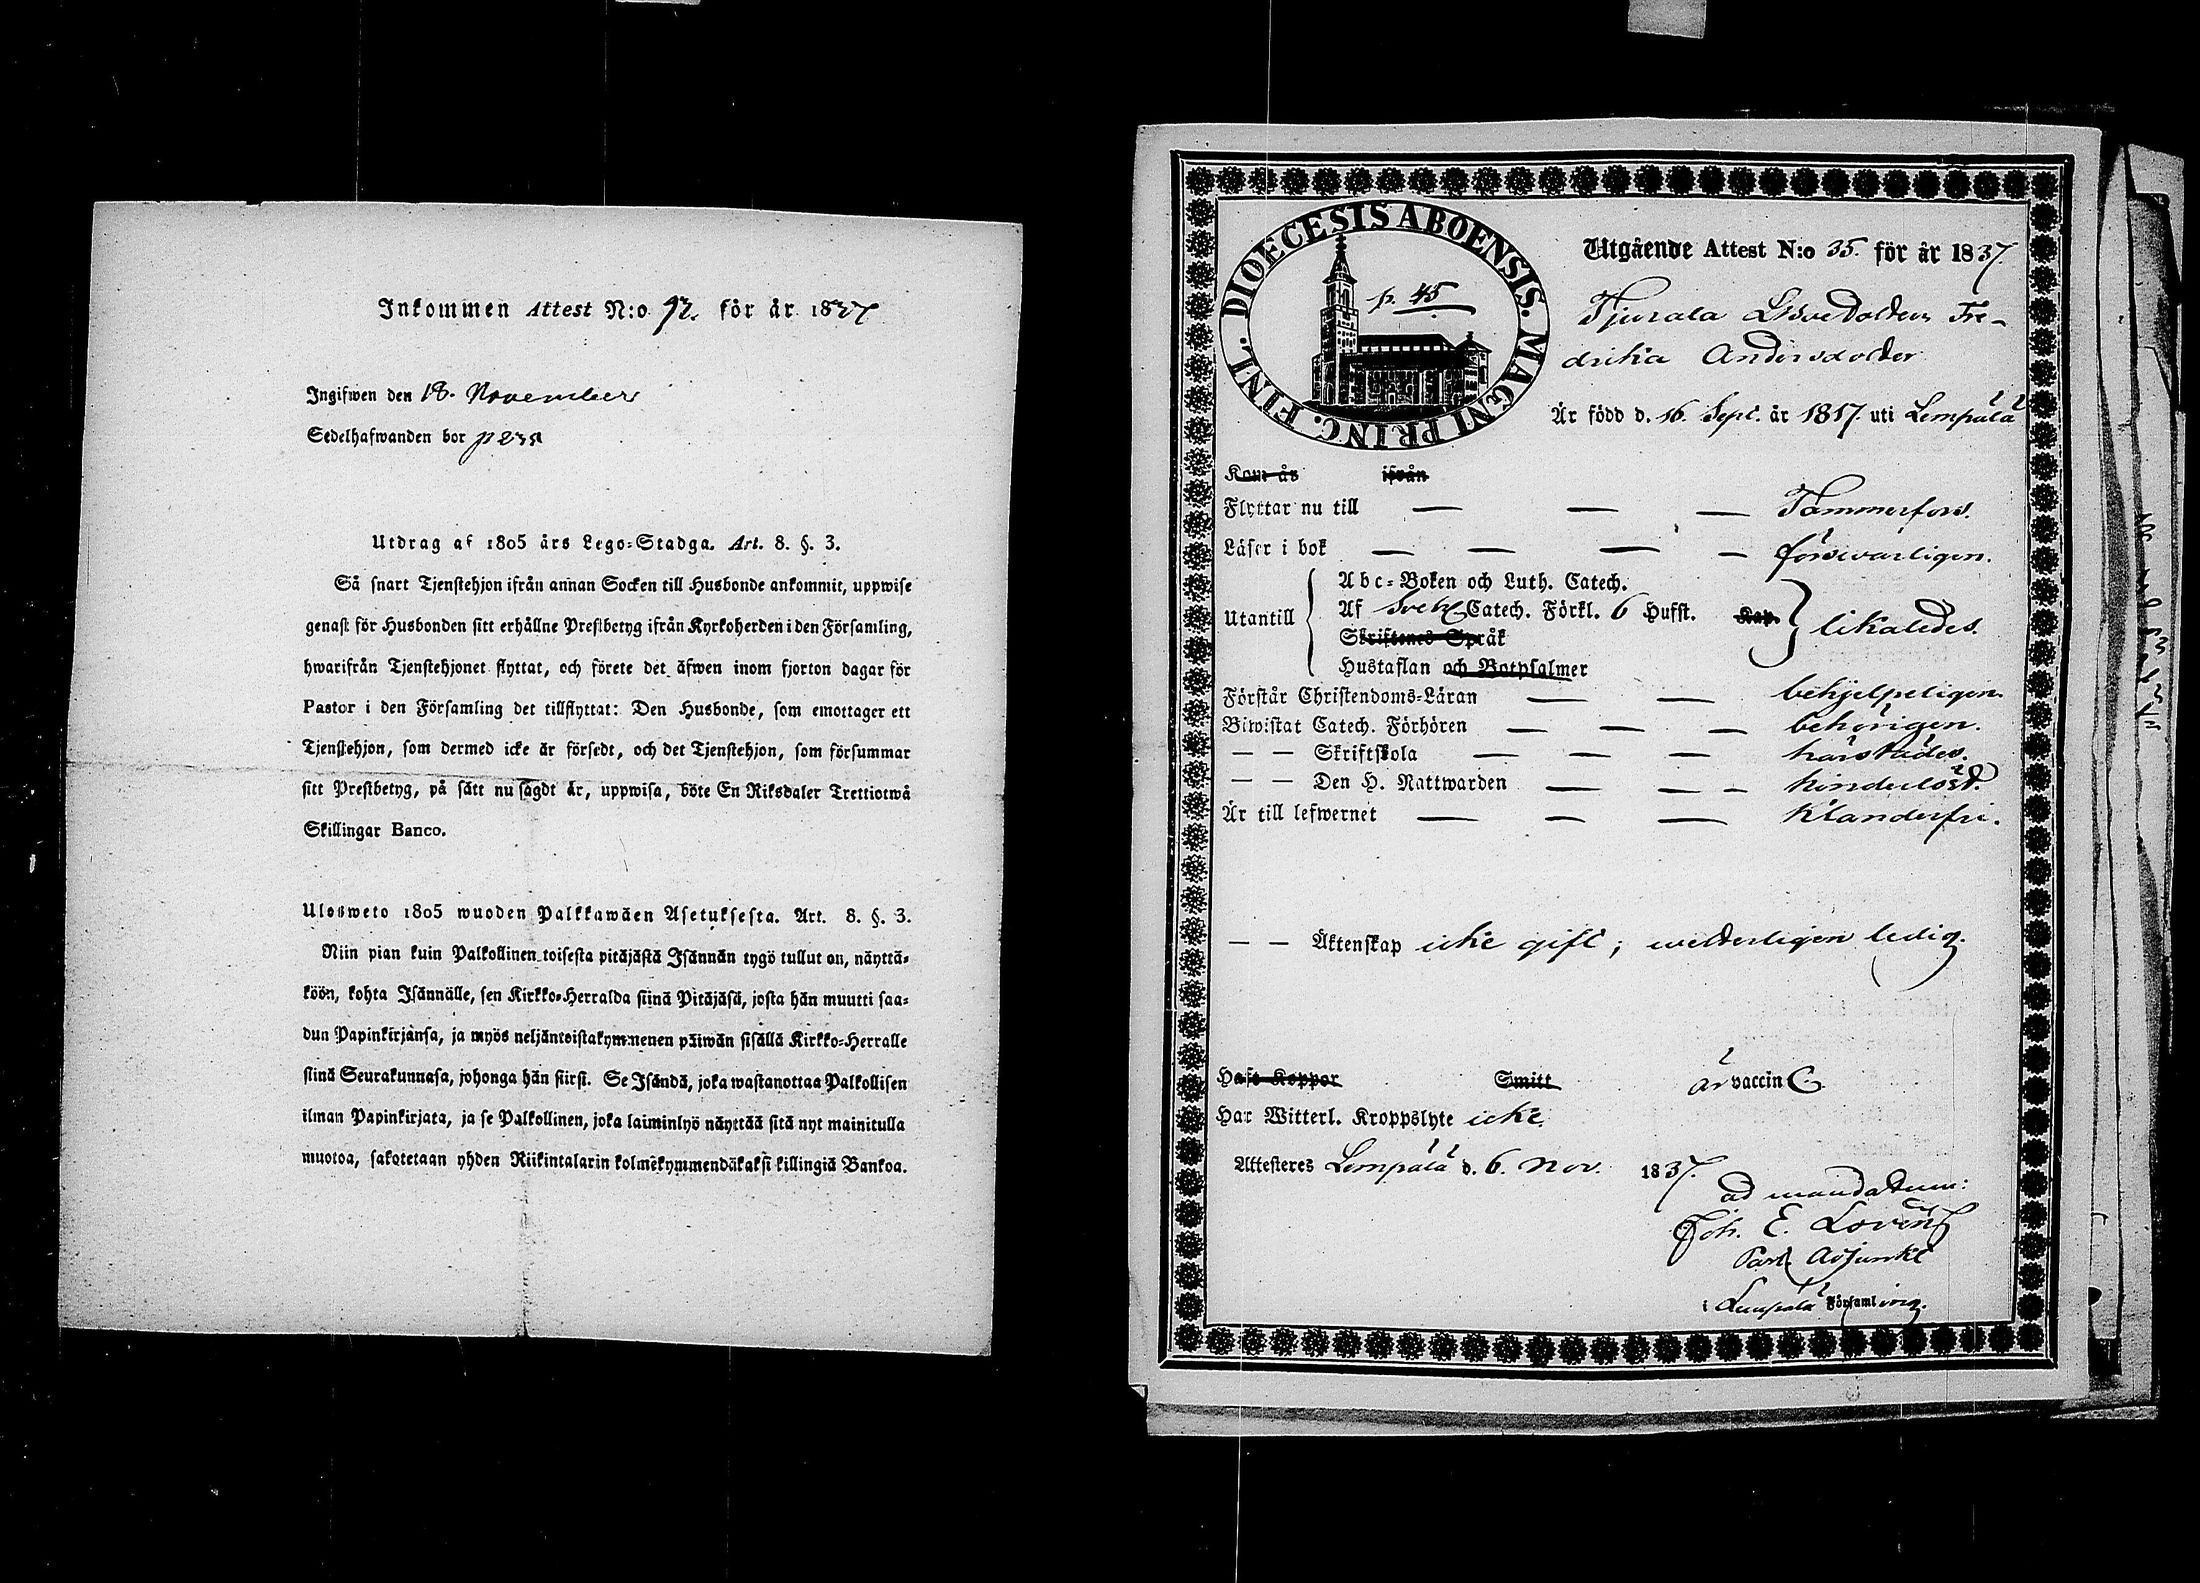 Inkommen Attest N:o 92. för år 1837
Ingifwen den 18. November
Sedelhafwanden bor p 231
Utdrag af 1805 års Lego-Stadga. Art. 8. §. 3.
Så snart Tjenstehjon ifrån annan Socken till Husbonde ankommit, uppwise
genast för Husbonden sitt erhållne Prestbetyg ifrån Kyrkoherden i den Församling,
hwarifrån Tjenstehjonet flyttat, och förete det äfwen inom fjorton dagar för
Pastor i den Församling det tillflyttat: Den Husbonde, som emottager ett
Tjenstehjon, som dermed icke är försedt, och det Tjenstehjon, som försummar
sitt Prestbetyg, på sätt nu sagdt är, uppwisa, böte En Riksdaler Trettiotwå
Skillingar Banco.
Ulosweto 1805 wuoden Palkkawäen Asetuksesta. Art. 8. §. 3.
Niin pian kuin Palkollinen toisesta pitäjästä Isännän tygö tullut on, näyttä-
köön, kohta Isännälle, sen Kirkko-Herralda siinä Pitäjäsä, josta hän muutti saa-
dun Papinkirjansa, ja myös neljäntoistakymmenen päiwän sisällä Kirkko-Herralle
siinä Seurakunnasa, johonga hän siirsi. Se Isändä, joka wastanottaa Palkollisen
ilman Papinkirjata, ja se Palkollinen, joka laiminlyö näyttää sitä nyt mainitulla
muotoa, sakotetaan yhden Riikintalarin kolmekymmendäkaksi killingiä Bankoa.
DIOECESIS ABOENSIS. MAGNI PRINC. FINL.
p. 45
Utgående Attest N:o 35. för år 1837.
Tjurala Fre-
drika Andersdotter
Är född d. 16. Sept. år 1817. uti Lempälä
Kom år ifrån
Flyttar nu till — — — Tammerfors.
Läser i bok — — — — försvarligen.
Utantill
Abc-Boken och Luth. Catech.
Af Sveb. Catech. Förkl. 6 Hufst. Kap.
Skriftenes Språk
Hustaflan och Botpsalmer
likaledes.
Förstår Christendoms-Läran — — behjelpeligen.
Biwistat Catech. Förhören — — — behörigen.
— — Skriftskola — — — härstädes.
— — Den H. Nattwarden — — — hinderlöst.
Är till lefwernet — — — klanderfri.
— — Äktenskap icke gift; wetterligen ledig.
Haft Koppor Smitt är vaccin
Har Witterl. Kroppslyte icke.
Attesteres Lempälä d. 6. Nov. 1837.
ad mandatum:
Joh. E. Lovén
Past. Adjunkt
i Lempälä Församling.